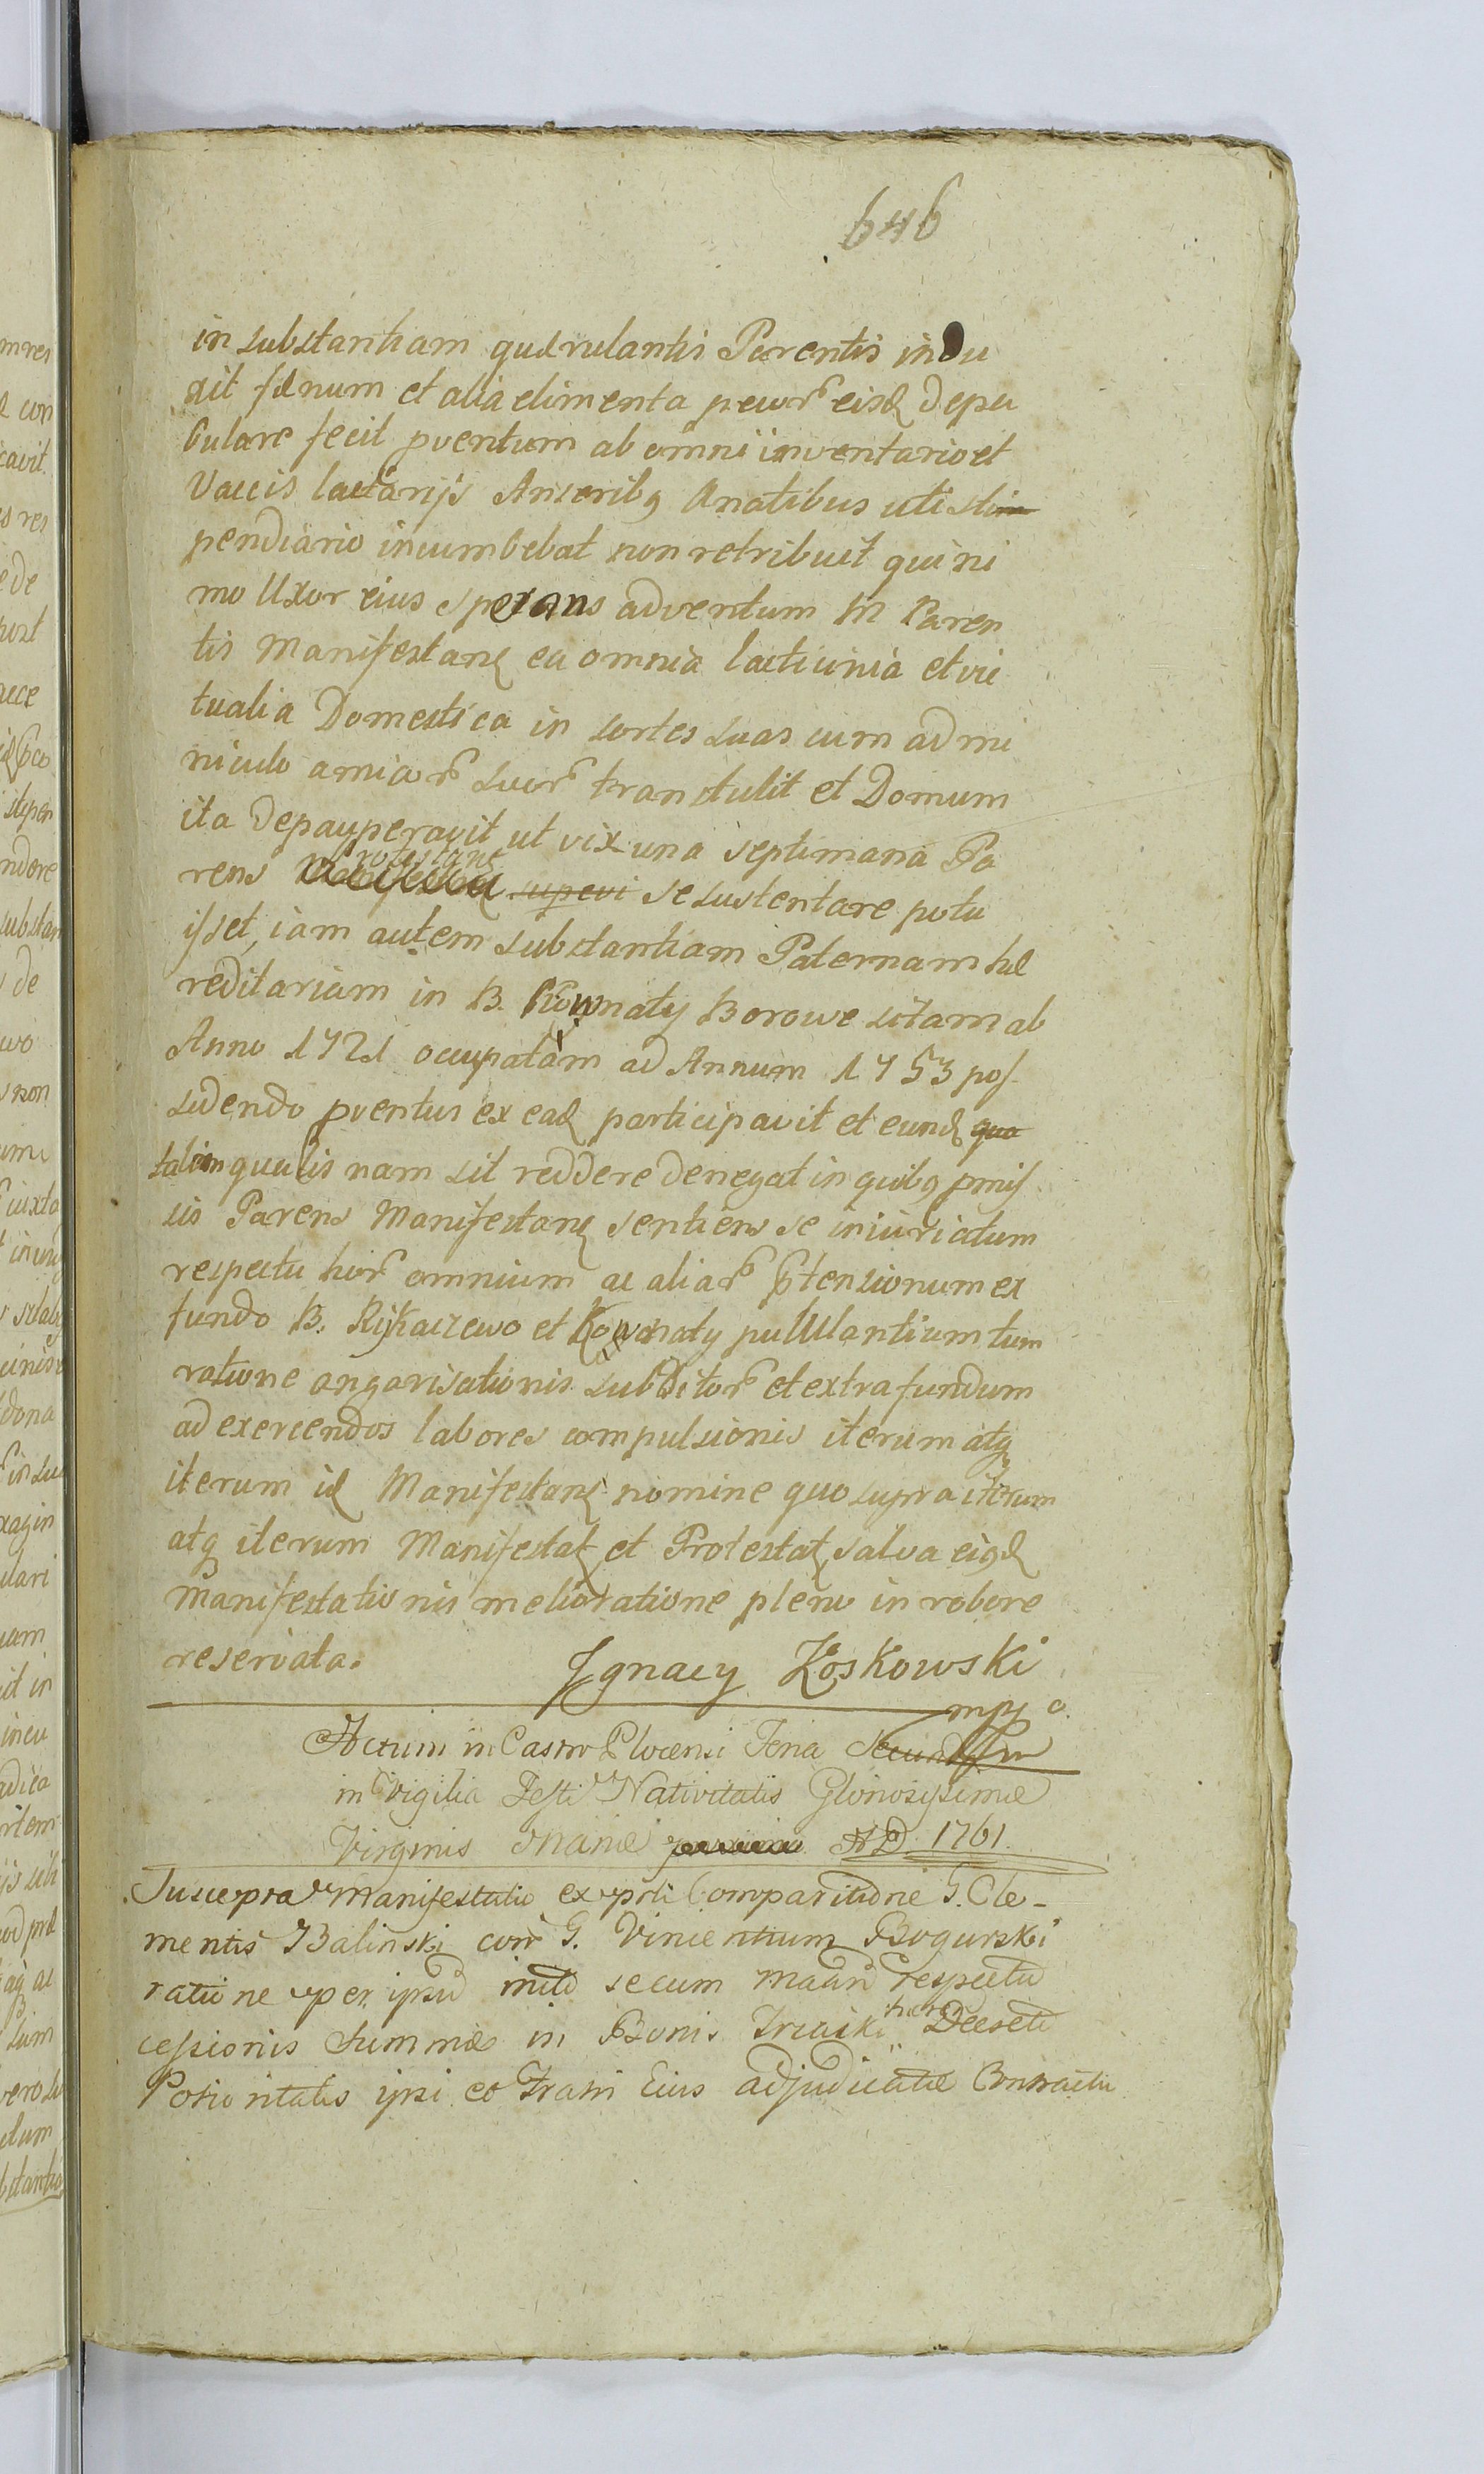 646
in substantiam quærulantis Parentis indu
xit fænum et alia alimenta pecor eisd depa
bulare fecit pventum ab omni inventario et
Vaccis lactarijs Anseribq Anatibus uti sti
pendiario incumbebat non retribuit qui ni
mo Uxor eius sperans adventum M Paren
tis Manifestanq ea omnia lacticinia et vic
tualia Domestica in sortes suas cum admi
niculo amicor suor transtulit et Domum
ita depauperavit ut vix una septimana Pa
rens Protestans se sustentare potu
isset, iam autem substantiam Paternam hæ
reditariam in B. Kownaty Borowe sitam ab
Anno 1721 occupatam ad Annum 1753 pos
sidendo pventus ex ead participavit et eund
talem qualis nam sit reddere denegat in quibq pmis
sis Parens Manifestanq sentiens se iniuriatum
respectu hor omnium ac aliar ptensionum ex
fundo B. Rykaczewo et Kownaty pullulantium tum
ratione angarisationis subditor et extra fundum
ad exercendos labores compulsionis iterum atq
iterum id Manifestanq nomine quo supra iterum
atq iterum Manifestat et Protestat, salva eisd
Manifestationis melioratione pleno in robore
reservata.
Ignacy Koskowski
mpp
Actum in Castro Plocensi Feria Secunda
in Vigilia Festi Nativitatis Gloriosissimæ
Virginis Mariæ A D. 1761.
Suscepta Manifestatio ex psti Comparitione G. Cle-
mentis Balinski con G. Vincentium Bogurski
ratione per ipsu inito secum respectu
cessionis Summæ in Bonis Decreto
Potioritatis ipsi et Fratri Eius adjudicatæ Contractu